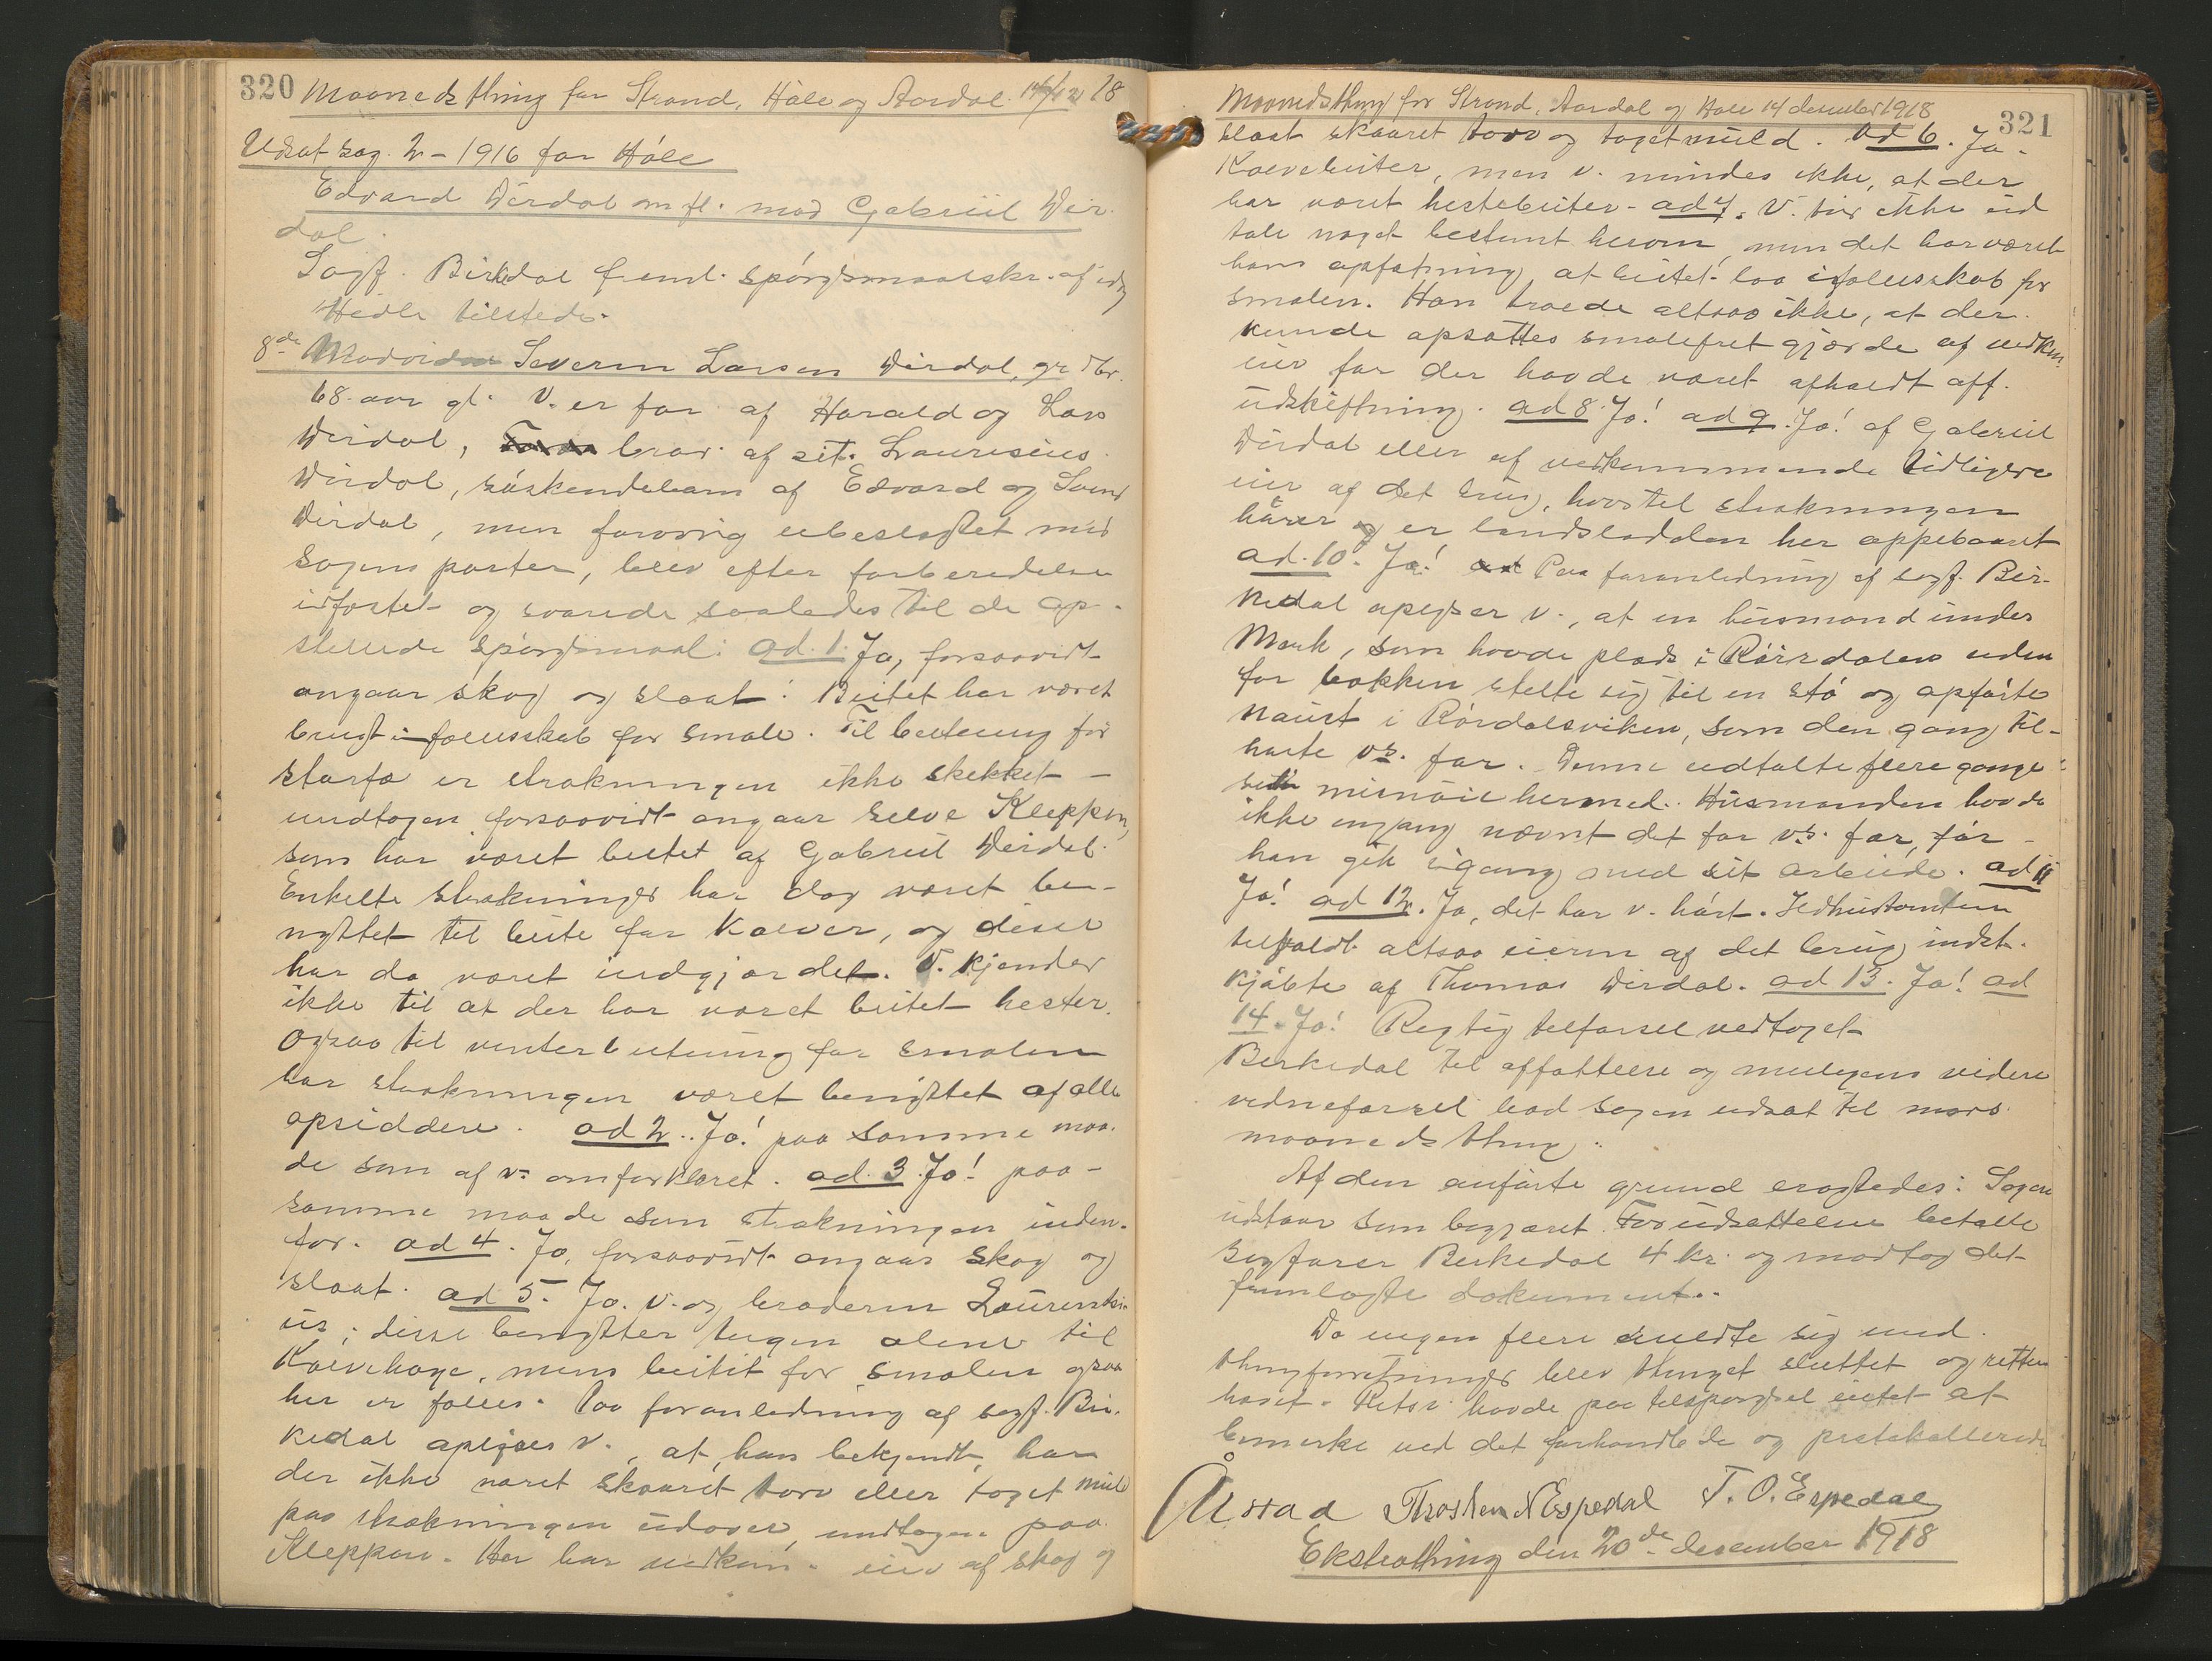 320 Maanedsthing for Strand, Høle og Aardal 14/12 18
Udsat sag. 2 - 1916 for Høle
Edvard Dirdal m fl. mod Gabriel Dir-
dal.
Sagf. Birkedal freml. spørgsmaalskr. af idag
Hedle tilstede.
8de Modvidne Severin Larsen Dirdal, grdbr.
68 aar gl. V. er far af Harald og Lars
Dirdal, bror af cit. Laurisius
Dirdal, søskendebarn af Edvard og Svend
Dirdal, men forøvrig ubeslægtet med
sagens parter, blev efter forberedelse
edfæstet og svarede saaledes til de op-
stillede spørgsmaal: ad. 1. Ja, forsaavidt
angaar skog og slaat. Beitet har været
brugt i fællesskab for smale. Til beitning for
storfæ er strækningen ikke skekket -
undtagen forsaavidt angaar selve Kleppen,
som har været beitet af Gabriel Dirdal.
Enkelte strækninger har dog været be-
nyttet til beite for kalver, og disse
har da været indgjærdet. V. kjender
ikke til at der har været beitet hester.
Ogsaa til vinterbeitning for smalen
har strækningen været benyttet af alle
opsiddere. ad 2. Ja! paa samme maa-
de som af v. omforklaret. ad. 3 Ja! paa-
samme maade som strækningen inden-
for. ad 4. Ja, forsaavidt angaar skog og
slaat. ad 5. Ja. V. og broderen Laurentsi-
us; disse benytter teigen alene til
Kalvehage, mens beitet for smalen ogsaa
her er fælles. Paa foranledning af sagf. Bir-
kedal oplyser v., at, ham bekjendt, har
der ikke været skaaret torv eller taget muld
paa strækningen udover, undtagen paa
Kleppen. Her har vedkom. eier af skog og
Maanedsthing for Strand, Aardal og Høle 14 december 1918
321
slaat skaaret torv og taget muld. ad 6. Ja.
Kalvebeiter, men v. mindes ikke, at der
har været hestebeiter - ad 7. V. tør ikke ud
tale noget bestemt herom, men det har været
hans opfatning, at beitet laa i fællesskab for
smalen. Han troede altsaa ikke, at der
kunde opsættes smalefret gjærde af vedkm.
eier før der havde været afholdt off.
udskiftning. ad 8. Ja! ad 9. Ja! af Gabriel
Dirdal eller af vedkommende tidligere
eier af det brug, hvortil strækningen
hører og er landslodden her oppebaaret
ad. 10. Ja! Paa foranledning af sagf. Bir-
kedal oplyser v., at en husmand under
Mæle, som havde plads i Rørdalen uden
for bækken stelte sig til en stø og opførte
naust i Rørdalsviken, som den gang til-
hørte vs. far. Denne udtalte flere gange
sit misnøie hermed. Husmanden havde
ikke engang nævnt det for vs. far, før
han gik igang med sit arbeide. ad 11
Ja! ad 12. Ja, det har v. hørt. Ildhustomten
tilfaldt altsaa eieren af det brug, indst.
kjøbte af Thomas Dirdal. ad 13. Ja! ad
14. Ja! Rigtig tilførsel vedtaget
Birkedal til affattelse og muligens videre
vidneførsel bad sagen udsat til mars
maanedsthing.
Af den anførte grund eragtedes: Sagen
udstaar som begjæret. For udsættelsen betalte
sagfører Birkedal 4 kr. og modtog det
fremlagte dokument.
Da ingen flere meldte sig med
thingforretninger blev thinget sluttet og retten
hævet. Retsv. havde paa tilspørgsel intet at
bemerke ved det forhandlede og protokollerede
Thorsten N Espedal T. O. Espedal
Ekstrathing den 20de december 1918